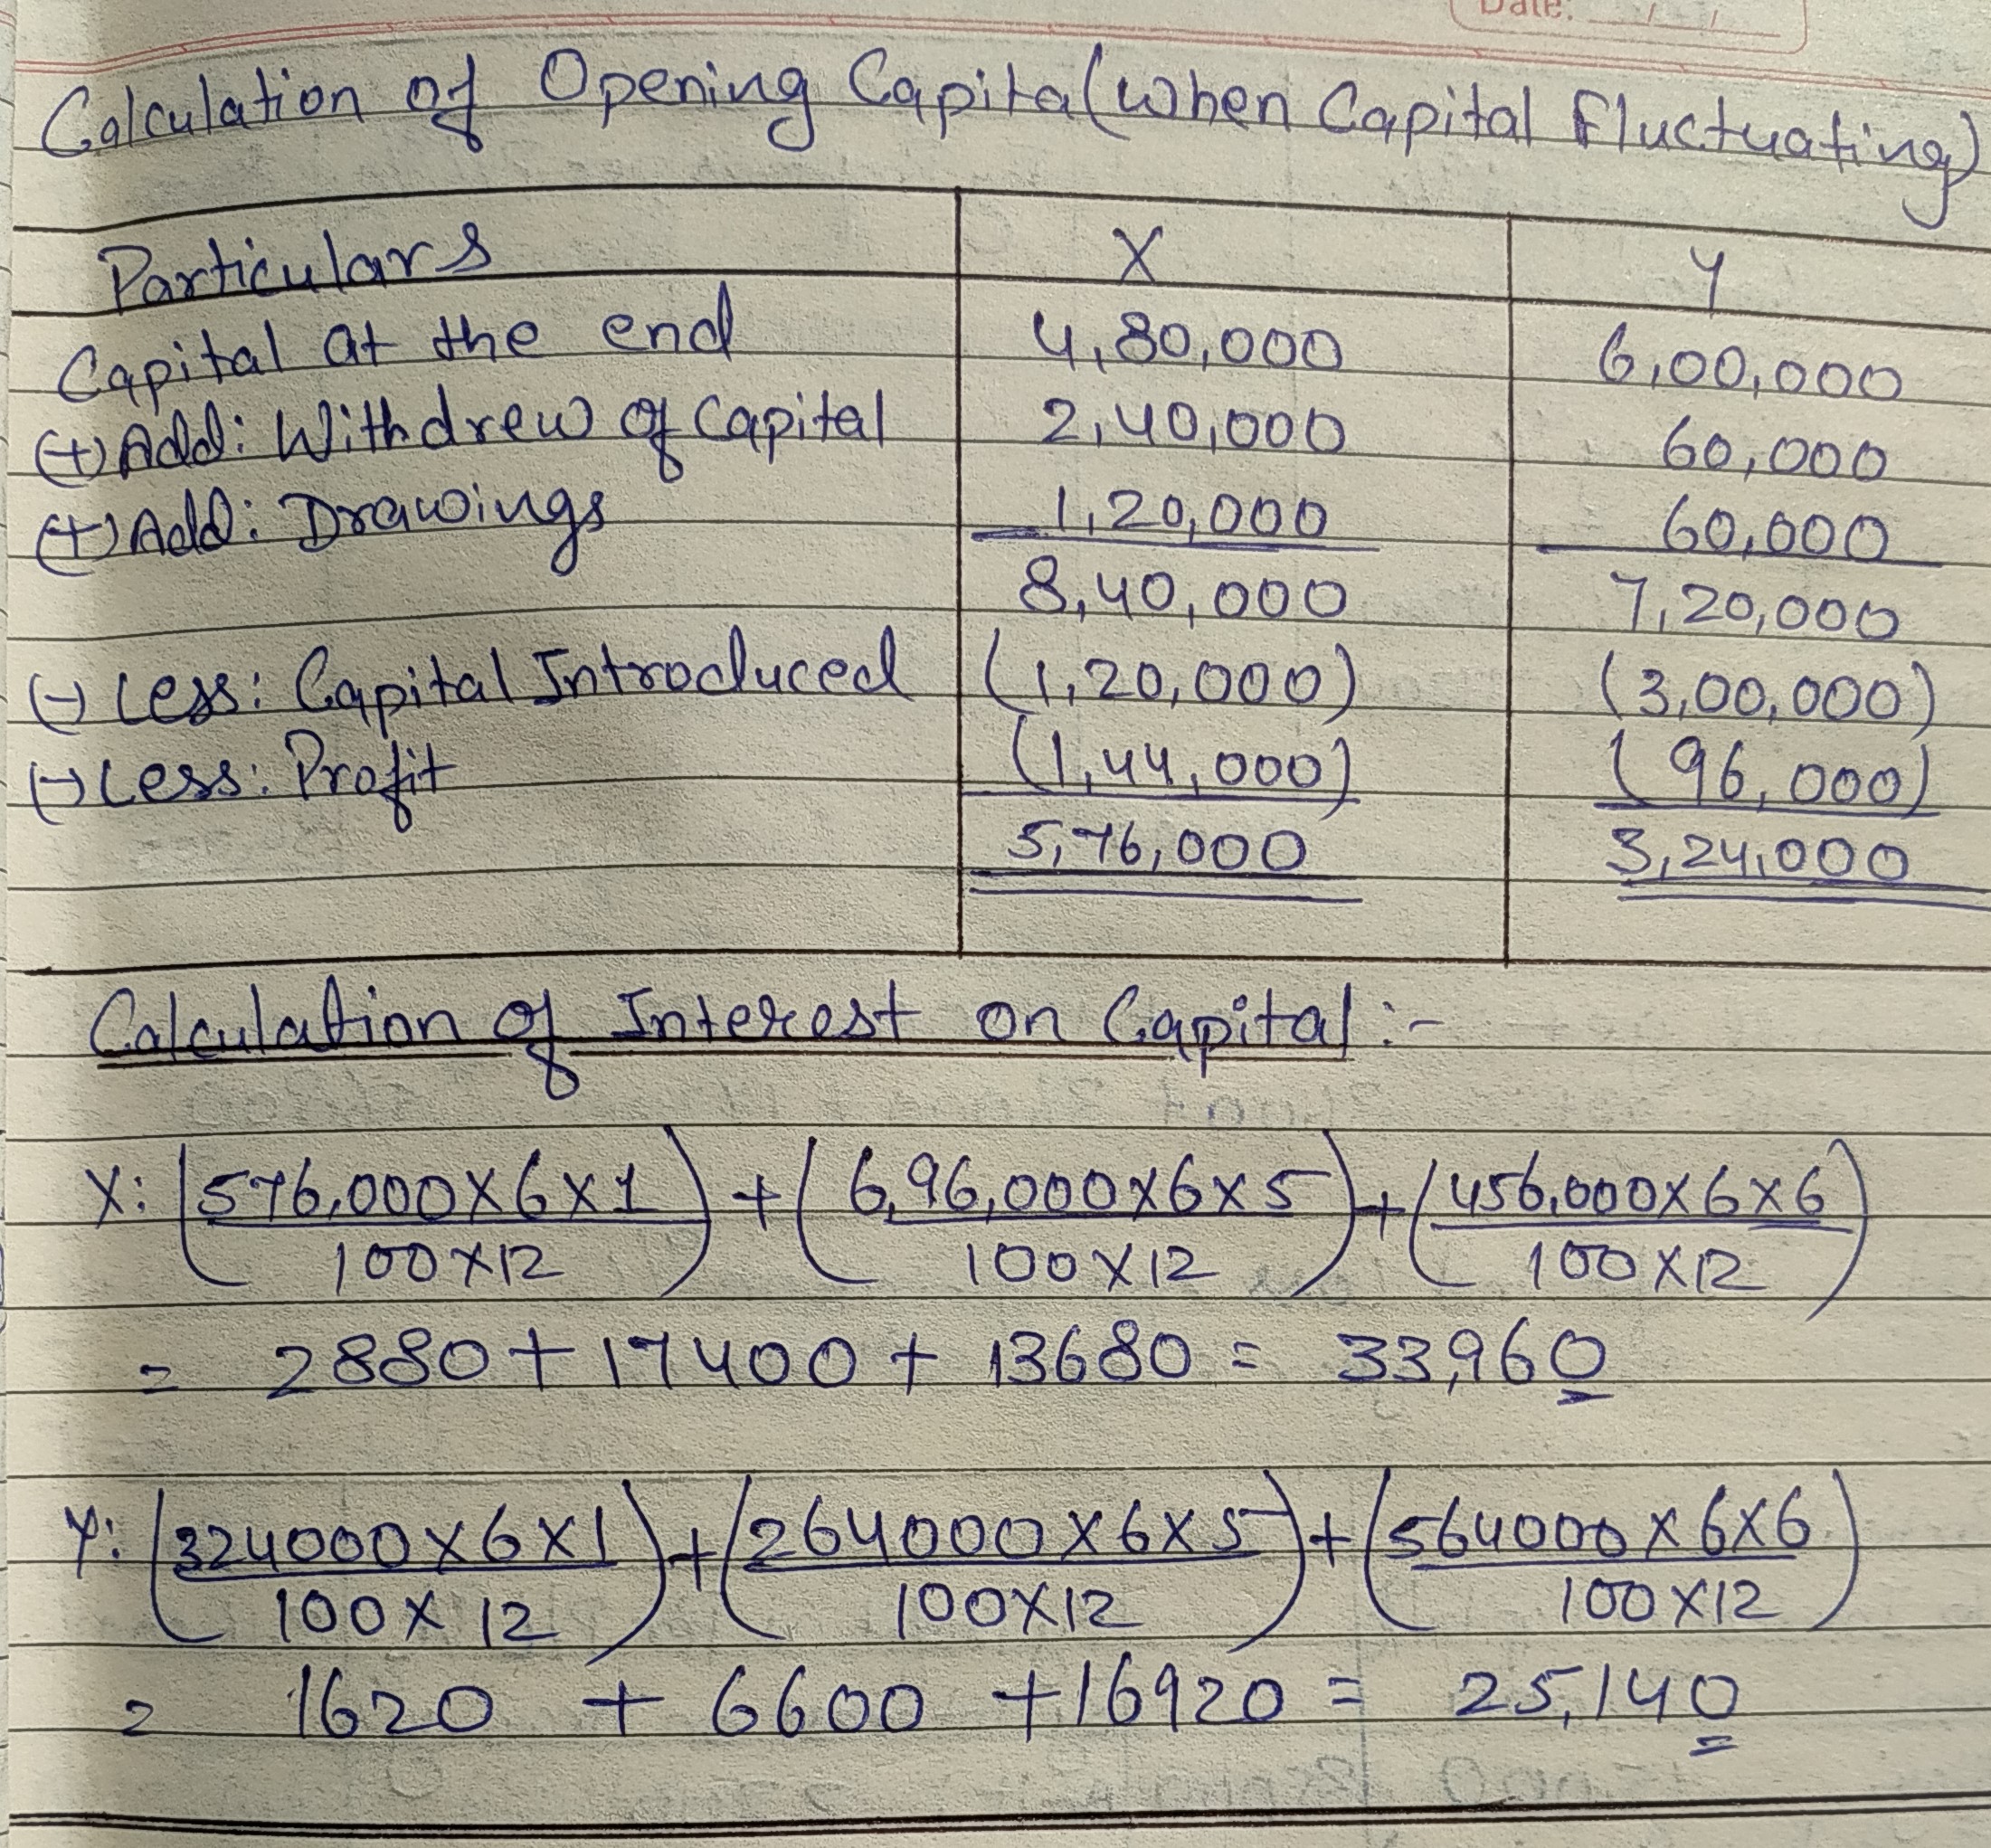 Date: / /
Calculation of Opening Capital (When Capital Fluctuating)
Particulars X Y
Capital at the end 4,80,000 6,00,000
(+) Add: Withdrew of Capital 2,40,000 60,000
(+) Add: Drawings 1,20,000 60,000
8,40,000 7,20,000
(-) Less: Capital Introduced (1,20,000) (3,00,000)
(-) Less: Profit (1,44,000) (96,000)
5,76,000 3,24,000
Calculation of Interest on Capital :-
X: (576,000 X 6 X 1) + (6,96,000 X 6 X 5) + (456,000 X 6 X 6)
100 X 12 100 X 12 100 X 12
= 2880 + 17400 + 13680 = 33,960
Y: (324000 X 6 X 1) + (264000 X 6 X 5) + (564000 X 6 X 6)
100 X 12 100 X 12 100 X 12
= 1620 + 6600 + 16920 = 25,140